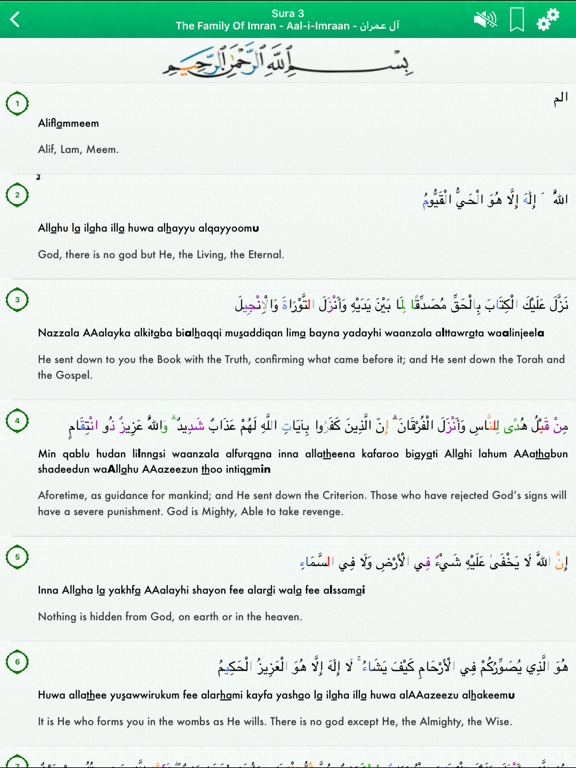 Sura 3
The Family Of Imran - Aal-i-Imraan - آل عمران
بِسْمِ اللَّهِ الرَّحْمَٰنِ الرَّحِيمِ
1
الم
Aliflammeem
Alif, Lam, Meem.
2
اللهُ لَا إِلَٰهَ إِلَّا هُوَ الْحَيُّ الْقَيُّومُ
Allahu la ilaha illa huwa alhayyu alqayyoomu
God, there is no god but He, the Living, the Eternal.
3
نَزَّلَ عَلَيْكَ الْكِتَابَ بِالْحَقِّ مُصَدِّقًا لِمَا بَيْنَ يَدَيْهِ وَأَنْزَلَ التَّوْرَاةَ وَالْإِنْجِيلَ
Nazzala AAalayka alkitaba bialhaqqi musaddiqan lima bayna yadayhi waanzala alttawrata waalinjeela
He sent down to you the Book with the Truth, confirming what came before it; and He sent down the Torah and
the Gospel.
4
مِنْ قَبْلُ هُدًى لِلنَّاسِ وَأَنْزَلَ الْفُرْقَانَ ۗ إِنَّ الَّذِينَ كَفَرُوا بِآيَاتِ اللَّهِ لَهُمْ عَذَابٌ شَدِيدٌ ۗ وَاللهُ عَزِيزٌ ذُو انْتِقَامٍ
Min qablu hudan lilnnasi waanzala alfurqana inna allatheena kafaroo biayati Allahi lahum AAathabun
shadeedun waAllahu AAazeezun thoo intiqamin
Aforetime, as guidance for mankind; and He sent down the Criterion. Those who have rejected God's signs will
have a severe punishment. God is Mighty, Able to take revenge.
5
إِنَّ اللهَ لَا يَخْفَىٰ عَلَيْهِ شَيْءٌ فِي الْأَرْضِ وَلَا فِي السَّمَاءِ
Inna Allaha la yakhfa AAalayhi shayon fee alardi wala fee alssamai
Nothing is hidden from God, on earth or in the heaven.
6
هُوَ الَّذِي يُصَوِّرُكُمْ فِي الْأَرْحَامِ كَيْفَ يَشَاءُ ۚ لَا إِلَٰهَ إِلَّا هُوَ الْعَزِيزُ الْحَكِيمُ
Huwa allathee yusawwirukum fee alarhami kayfa yashao la ilaha illa huwa alAAazeezu alhakeemu
It is He who forms you in the wombs as He wills. There is no god except He, the Almighty, the Wise.
7